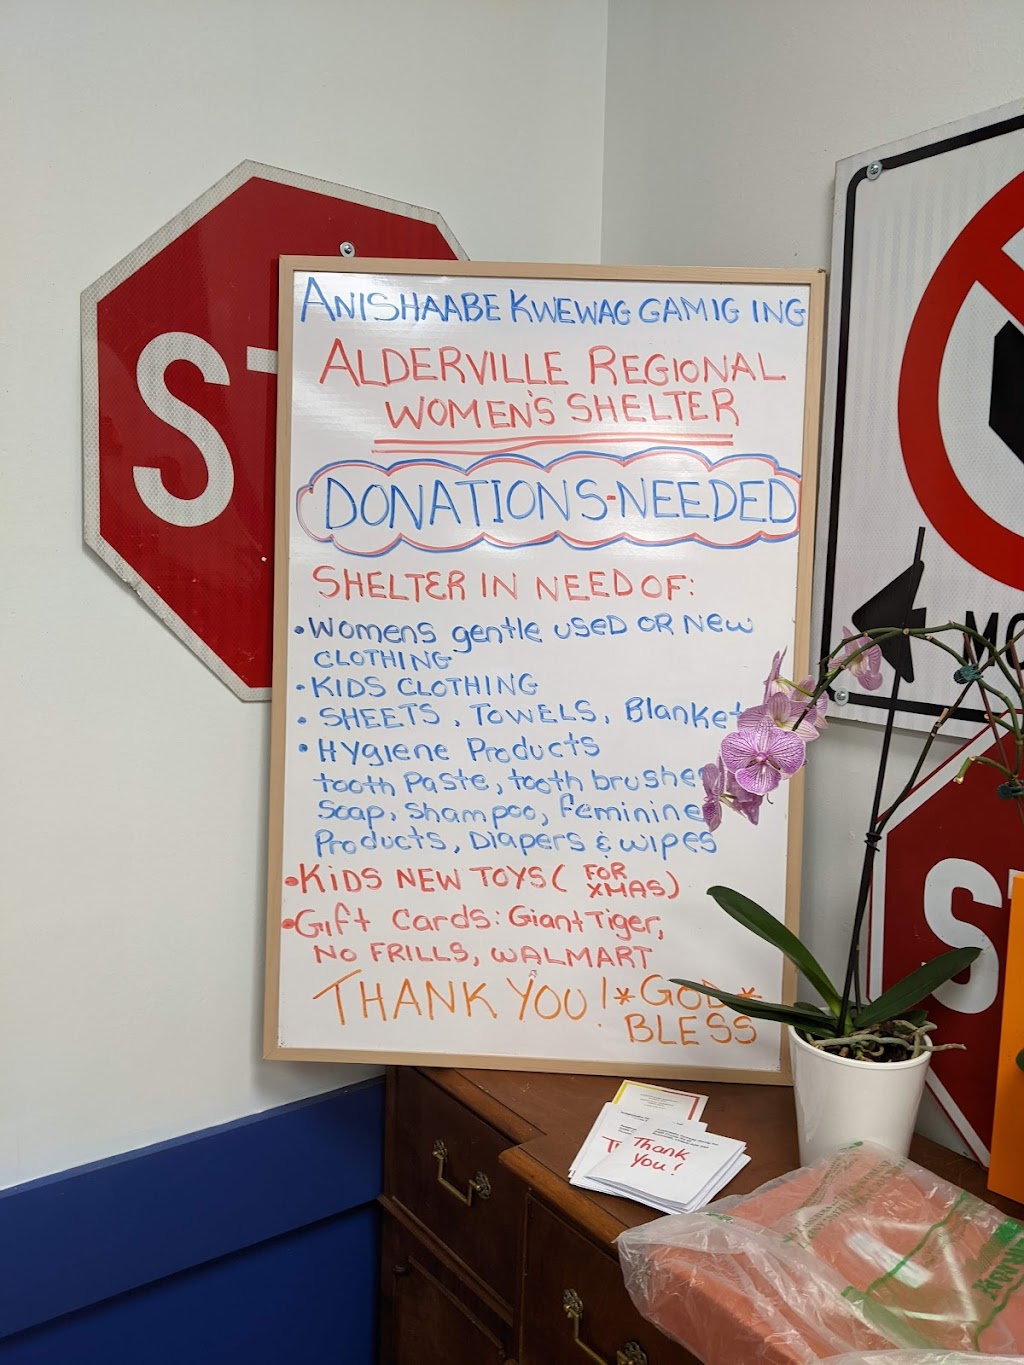 ANISHAABE KWEWAG GAMIG ING
ALDERVILLE REGIONAL
WOMEN'S SHELTER
DONATIONS-NEEDED
SHELTER IN NEED OF:
• WOMENS gentle USED OR New
CLOTHING
• KIDS CLOTHING
• SHEETS, TOWELS, Blanket
• Hygiene Products
tooth Paste, tooth brushes
Soap, Shampoo, Feminine
Products, Diapers & wipes
• KIDS NEW TOYS ( FOR
XMAS )
• Gift Cards: Giant Tiger,
NO FRILLS, WALMART
THANK YOU! *GOD*
BLESS
Thank
You!
ST
MO
ST